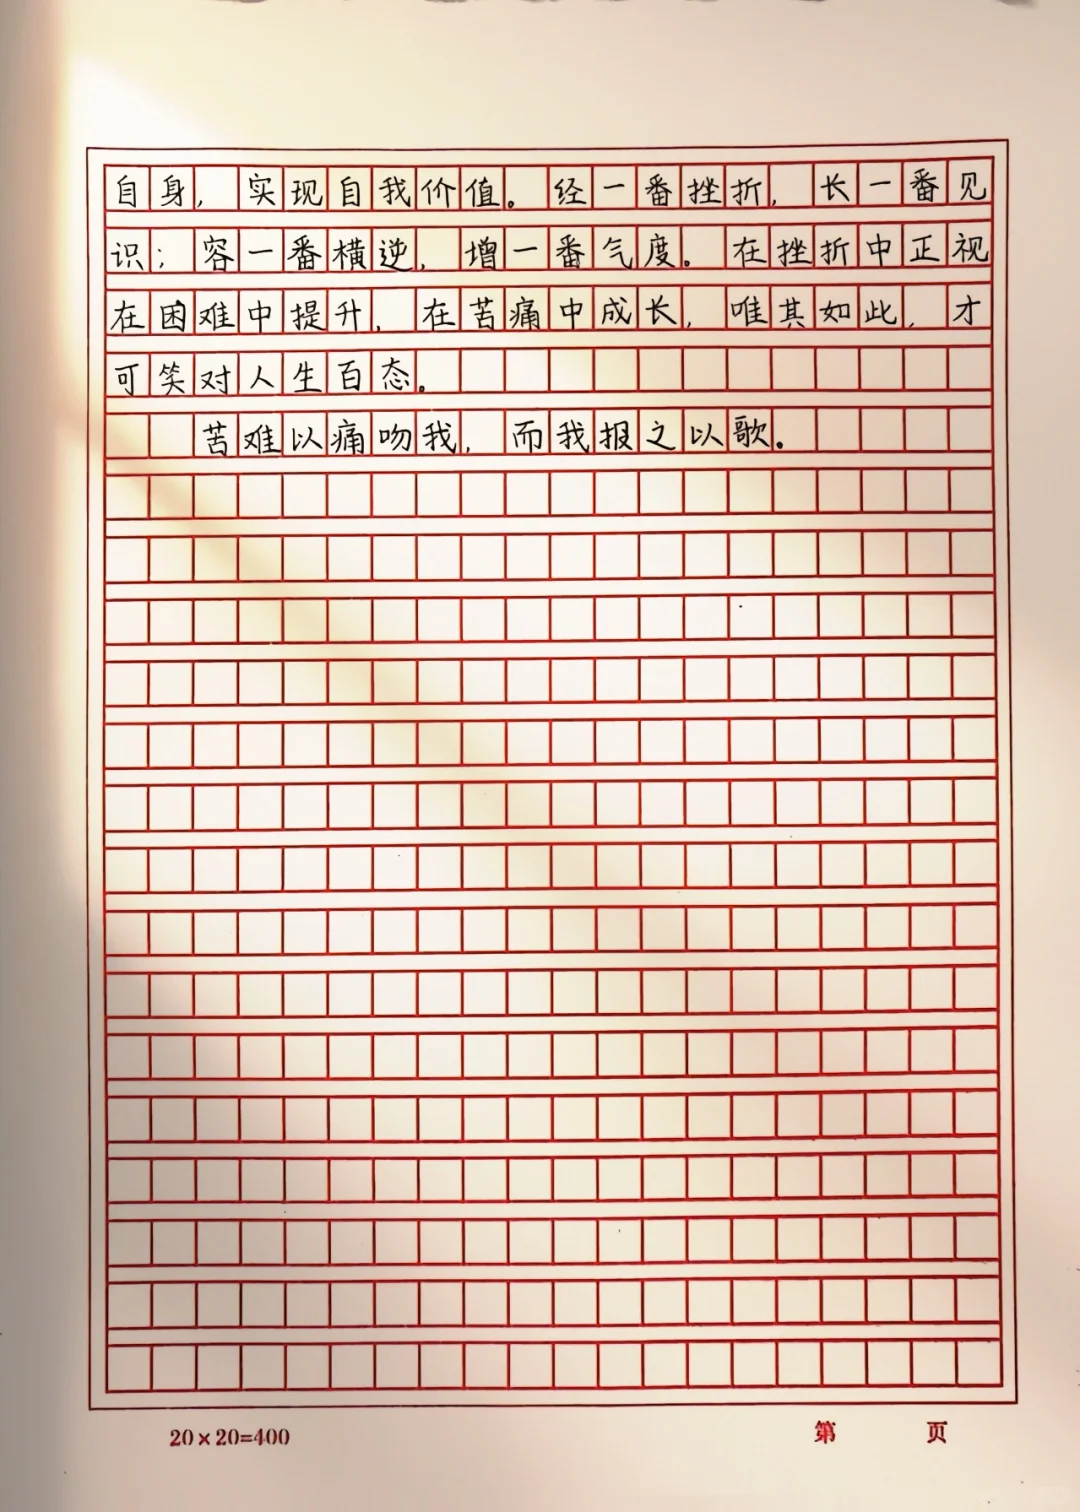 自身，实现自我价值。经一番挫折，长一番见
识；容一番横逆，增一番气度。在挫折中正视
在困难中提升，在苦痛中成长，唯其如此，才
可笑对人生百态。
苦难以痛吻我，而我报之以歌。
20×20=400
第 页